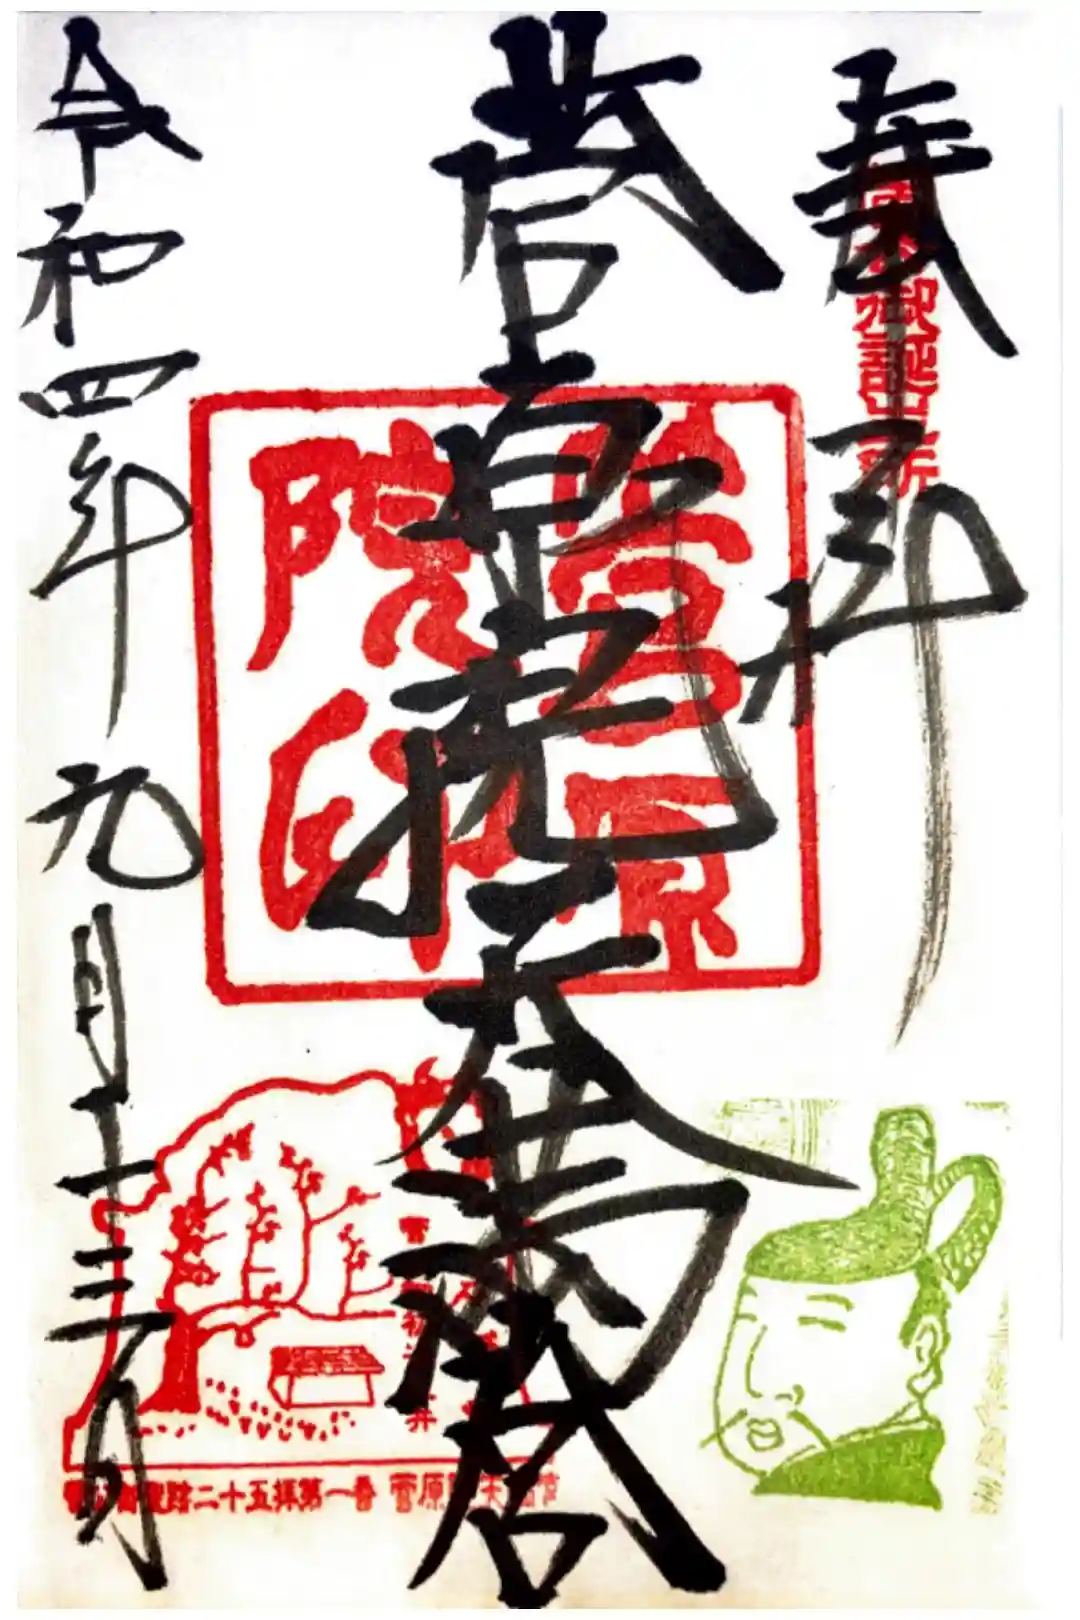 奉拝
御誕生所
菅原院天満宮
菅原院印
令和四年九月十三日
蹟二十五拝第一番 菅原院天満宮